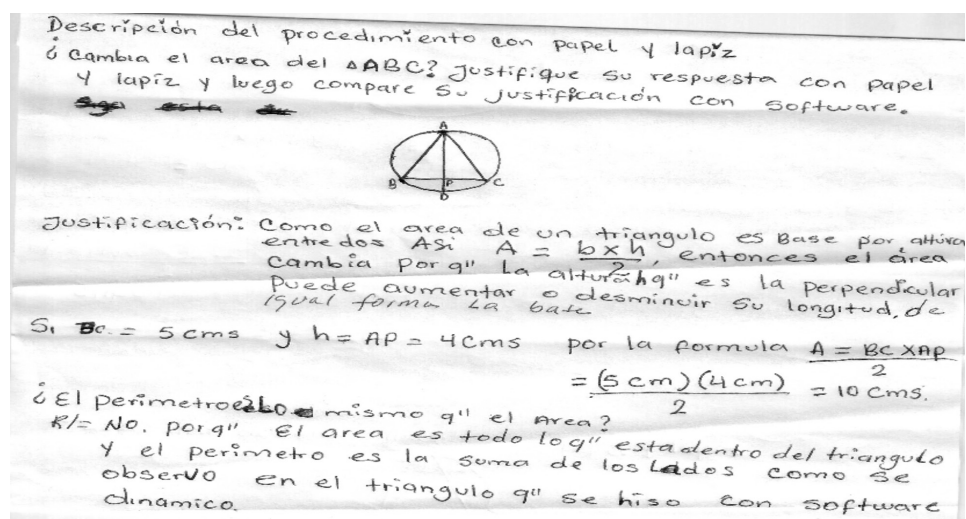 Descripción del procedimiento con papel y lapiz
¿ Cambia el area del ΔABC? Justifique su respuesta con papel
y lapiz y luego compare su justificación con software.
A
B P C
D
Justificación: Como el area de un triangulo es Base por altura
entre dos ASi A = b x h / 2, entonces el área
cambia por q" La altura h q" es la perpendicular
puede aumentar o desminuir su longitud, de
igual forma La base
Si BC = 5 cms y h = AP = 4 cms por la formula A = BC X AP / 2
= (5 cm)(4 cm) / 2 = 10 cms.
¿ El perimetro es lo mismo q" el Area?
R/= No. porq" El area es todo lo q" esta dentro del triangulo
y el perimetro es la suma de los Lados como se
observo en el triangulo q" se hiso con software
dinamico.